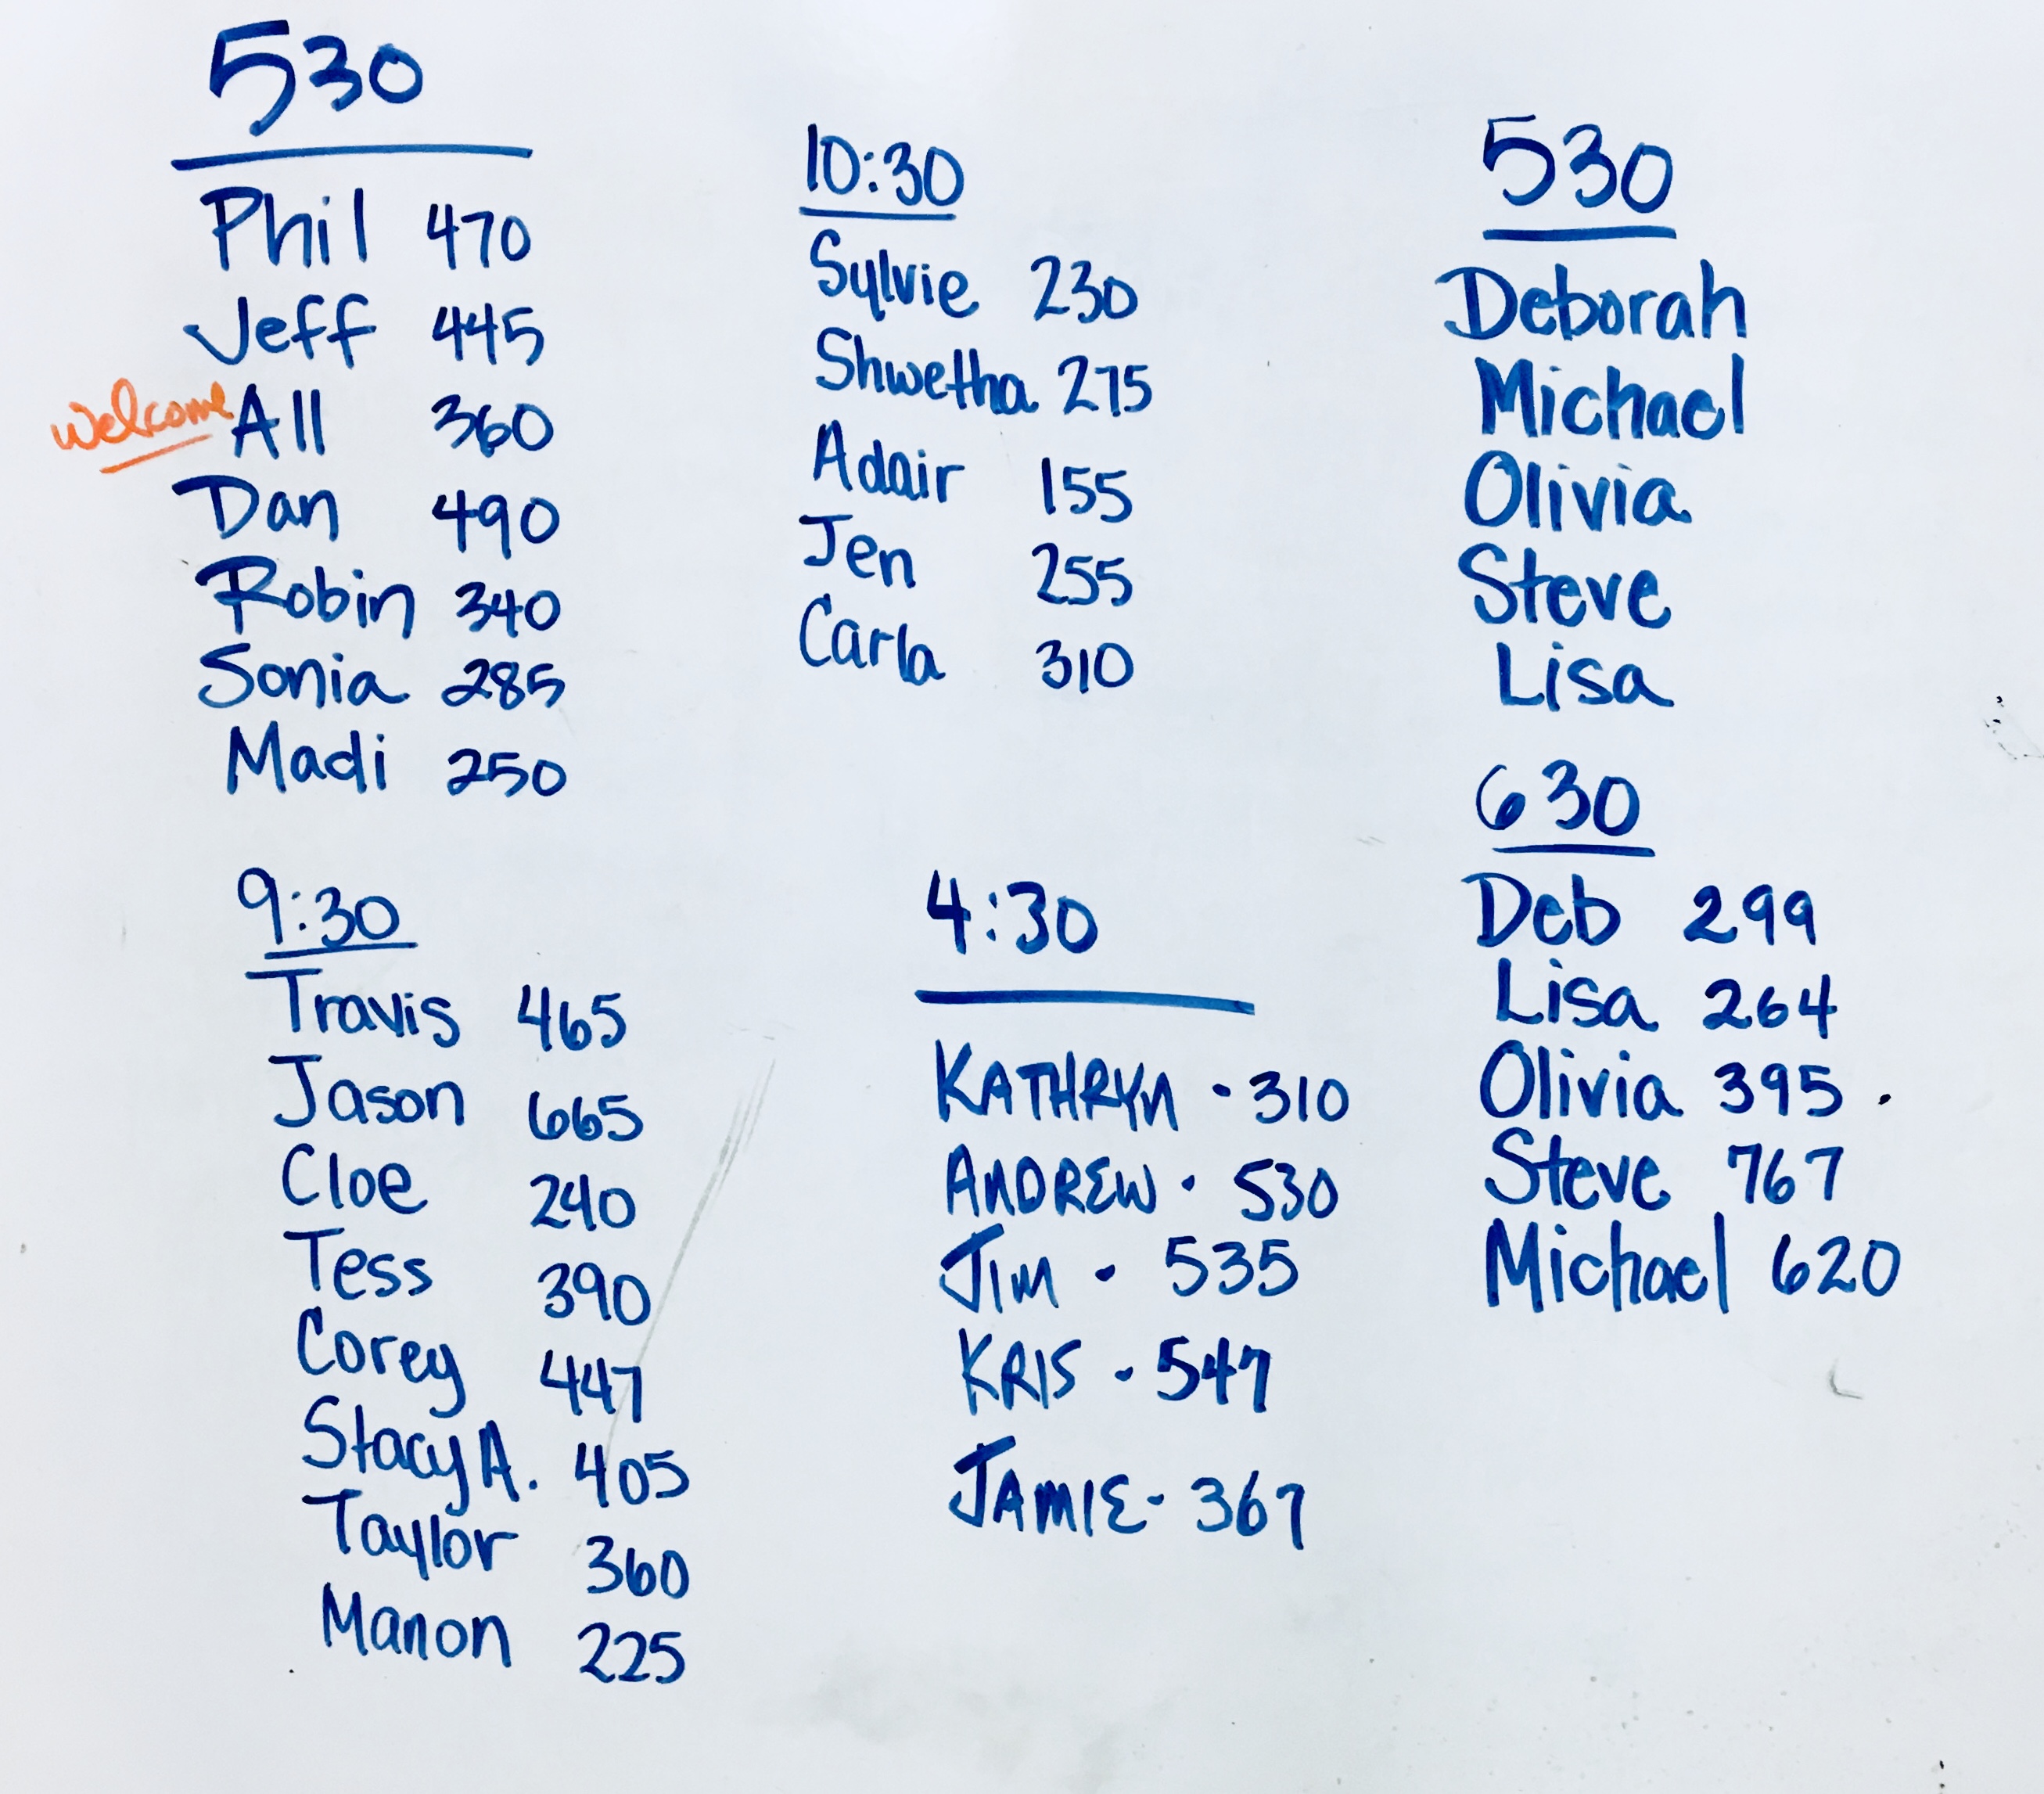 530
Phil 470
Jeff 445
welcome All 360
Dan 490
Robin 340
Sonia 285
Madi 250
9:30
Travis 465
Jason 665
Cloe 240
Tess 390
Corey 447
Stacy A. 405
Taylor 360
Manon 225
10:30
Sylvie 230
Shwetha 275
Adair 155
Jen 255
Carla 310
4:30
KATHRYN - 310
ANDREW - 530
JIM - 535
KRIS - 547
JAMIE - 367
530
Deborah
Michael
Olivia
Steve
Lisa
630
Deb 299
Lisa 264
Olivia 395
Steve 767
Michael 620